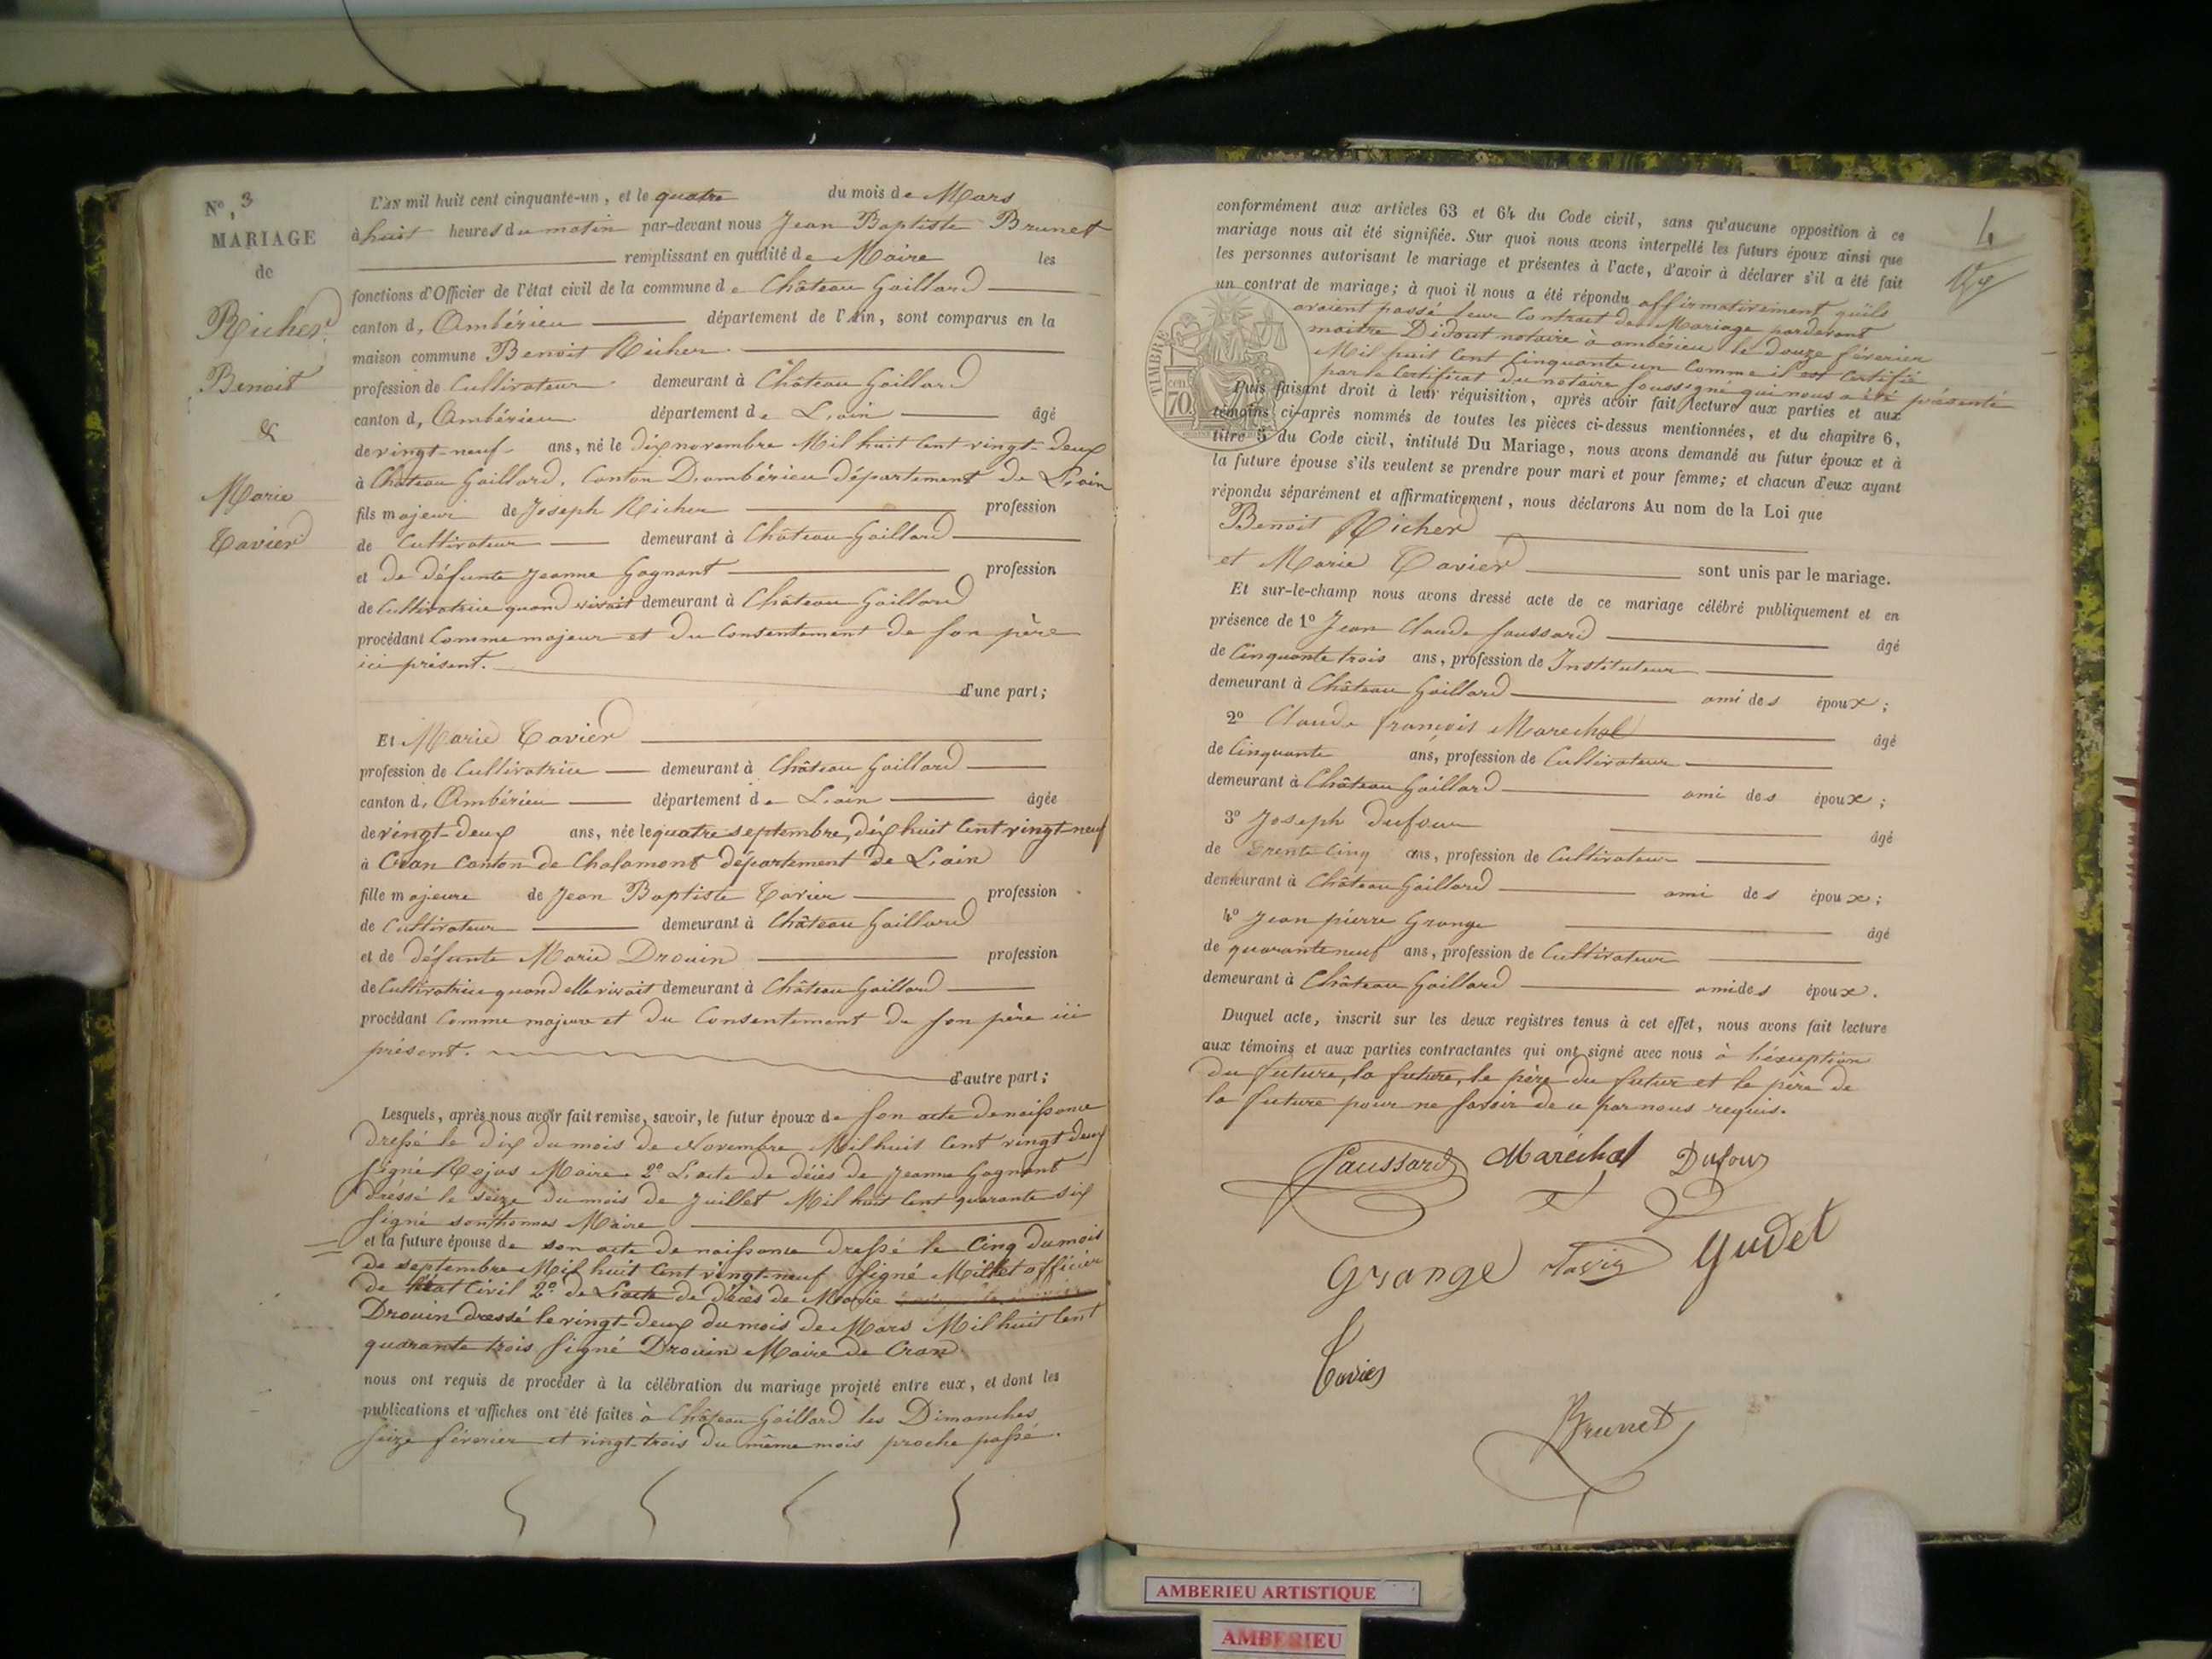 N°, 3
MARIAGE
de
Richer
Benoit
&
Marie
Tavier
L'AN mil huit cent cinquante-un, et le quatre du mois de Mars
à huit heures du matin par-devant nous Jean Baptiste Brunet
remplissant en qualité de Maire les
fonctions d'Officier de l'état civil de la commune de Château Gaillard
canton d, Ambérieu département de l'Ain, sont comparus en la
maison commune Benoit Richer
profession de Cultivateur demeurant à Château Gaillard
canton d, Ambérieu département de L'ain âgé
de vingt-neuf ans, né le dix novembre Mil huit Cent vingt-deux
à Château Gaillard, Canton D'ambérieu département de L'ain
fils majeur de Joseph Richer profession
de Cultivateur demeurant à Château Gaillard
et de défunte Jeanne Gagnant profession
de Cultivatrice quand vivait demeurant à Château Gaillard
procédant Comme majeur et du Consentement de son père
ici présent.
d'une part;
Et Marie Tavier
profession de Cultivatrice demeurant à Château Gaillard
canton d, Ambérieu département de L'ain âgée
de vingt-deux ans, née le quatre septembre, dix huit Cent vingt-neuf
à Cran Canton de Chalamont département de L'ain
fille majeure de Jean Baptiste Tavier profession
de Cultivateur demeurant à Château Gaillard
et de défunte Marie Drouin profession
de Cultivatrice quand elle vivait demeurant à Château Gaillard
procédant Comme majeure et du Consentement de son père ici
présent.
d'autre part;
Lesquels, après nous avoir fait remise, savoir, le futur époux de son acte de naissance
dressé le dix du mois de Novembre Mil huit Cent vingt deux
signé Rojas Maire 2° L'acte de décès de Jeanne Gagnant
dréssé le seize du mois de Juillet Mil huit Cent quarante six
signé sonthonnas Maire
et la future épouse de son acte de naissance dressé le Cinq du mois
de septembre Mil huit Cent vingt-neuf signé Millet officier
de l'état Civil 2° de L'acte de décès de Marie
Drouin dressé le vingt-deux du mois de Mars Mil huit Cent
quarante trois signé Drouin Maire de Cran
nous ont requis de procéder à la célébration du mariage projeté entre eux, et dont les
publications et affiches ont été faites à Château Gaillard les Dimanches
seize féverier et vingt-trois du même mois proche passé.
4
conformément aux articles 63 et 64 du Code civil, sans qu'aucune opposition à ce
mariage nous ait été signifiée. Sur quoi nous avons interpellé les futurs époux ainsi que
les personnes autorisant le mariage et présentes à l'acte, d'avoir à déclarer s'il a été fait
un contrat de mariage; à quoi il nous a été répondu affirmativement qu'ils
avaient passé leur Contrat de Mariage pardevant
maitre Didout notaire à ambérieu le douze féverier
Mil huit Cent Cinquante un Comme il est Certifié
par le Certificat du notaire soussigné qui nous a été présenté
TIMBRE
70 cen
Puis faisant droit à leur réquisition, après avoir fait lecture aux parties et aux
témoins ci-après nommés de toutes les pièces ci-dessus mentionnées, et du chapitre 6,
titre 5 du Code civil, intitulé Du Mariage, nous avons demandé au futur époux et à
la future épouse s'ils veulent se prendre pour mari et pour femme; et chacun d'eux ayant
répondu séparément et affirmativement, nous déclarons Au nom de la Loi que
Benoit Richer
et Marie Tavier sont unis par le mariage.
Et sur-le-champ nous avons dressé acte de ce mariage célébré publiquement et en
présence de 1° Jean Claude faussard âgé
de Cinquante trois ans, profession de Instituteur
demeurant à Château Gaillard ami des époux;
2° Claude françois Marechal âgé
de Cinquante ans, profession de Cultivateur
demeurant à Château Gaillard ami des époux;
3° Joseph Dufour âgé
de Trente Cinq ans, profession de Cultivateur
demeurant à Château Gaillard ami des époux;
4° Jean pierre Grange âgé
de quarante neuf ans, profession de Cultivateur
demeurant à Château Gaillard ami des époux.
Duquel acte, inscrit sur les deux registres tenus à cet effet, nous avons fait lecture
aux témoins et aux parties contractantes qui ont signé avec nous à l'éxception
du future, la future, le père du futur et le père de
la future pour ne savoir de ce par nous requis.
faussard Maréchal Dufour
Grange Tavier Gudet
Tavier
Brunet
AMBERIEU ARTISTIQUE
AMBERIEU